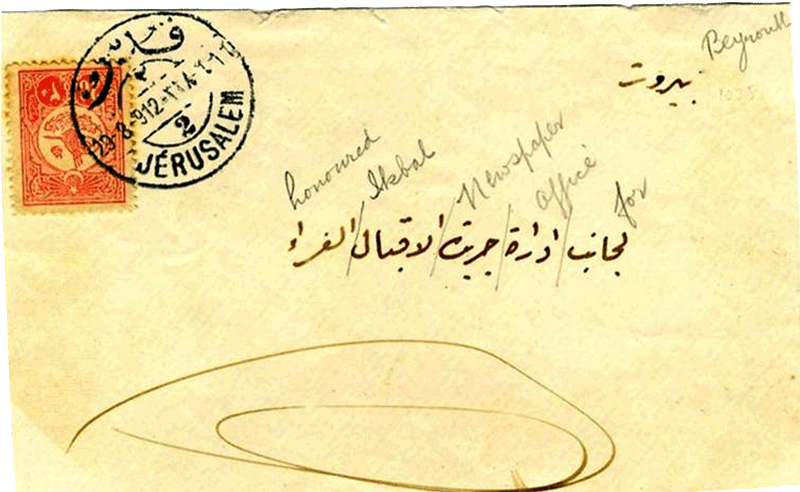 Beyrouth
بيروت
قدس
29-8-912
2
JÉRUSALEM
honoured Ikbal Newspaper Office for
لجانب ادارة جريدة الاقبال الغراء